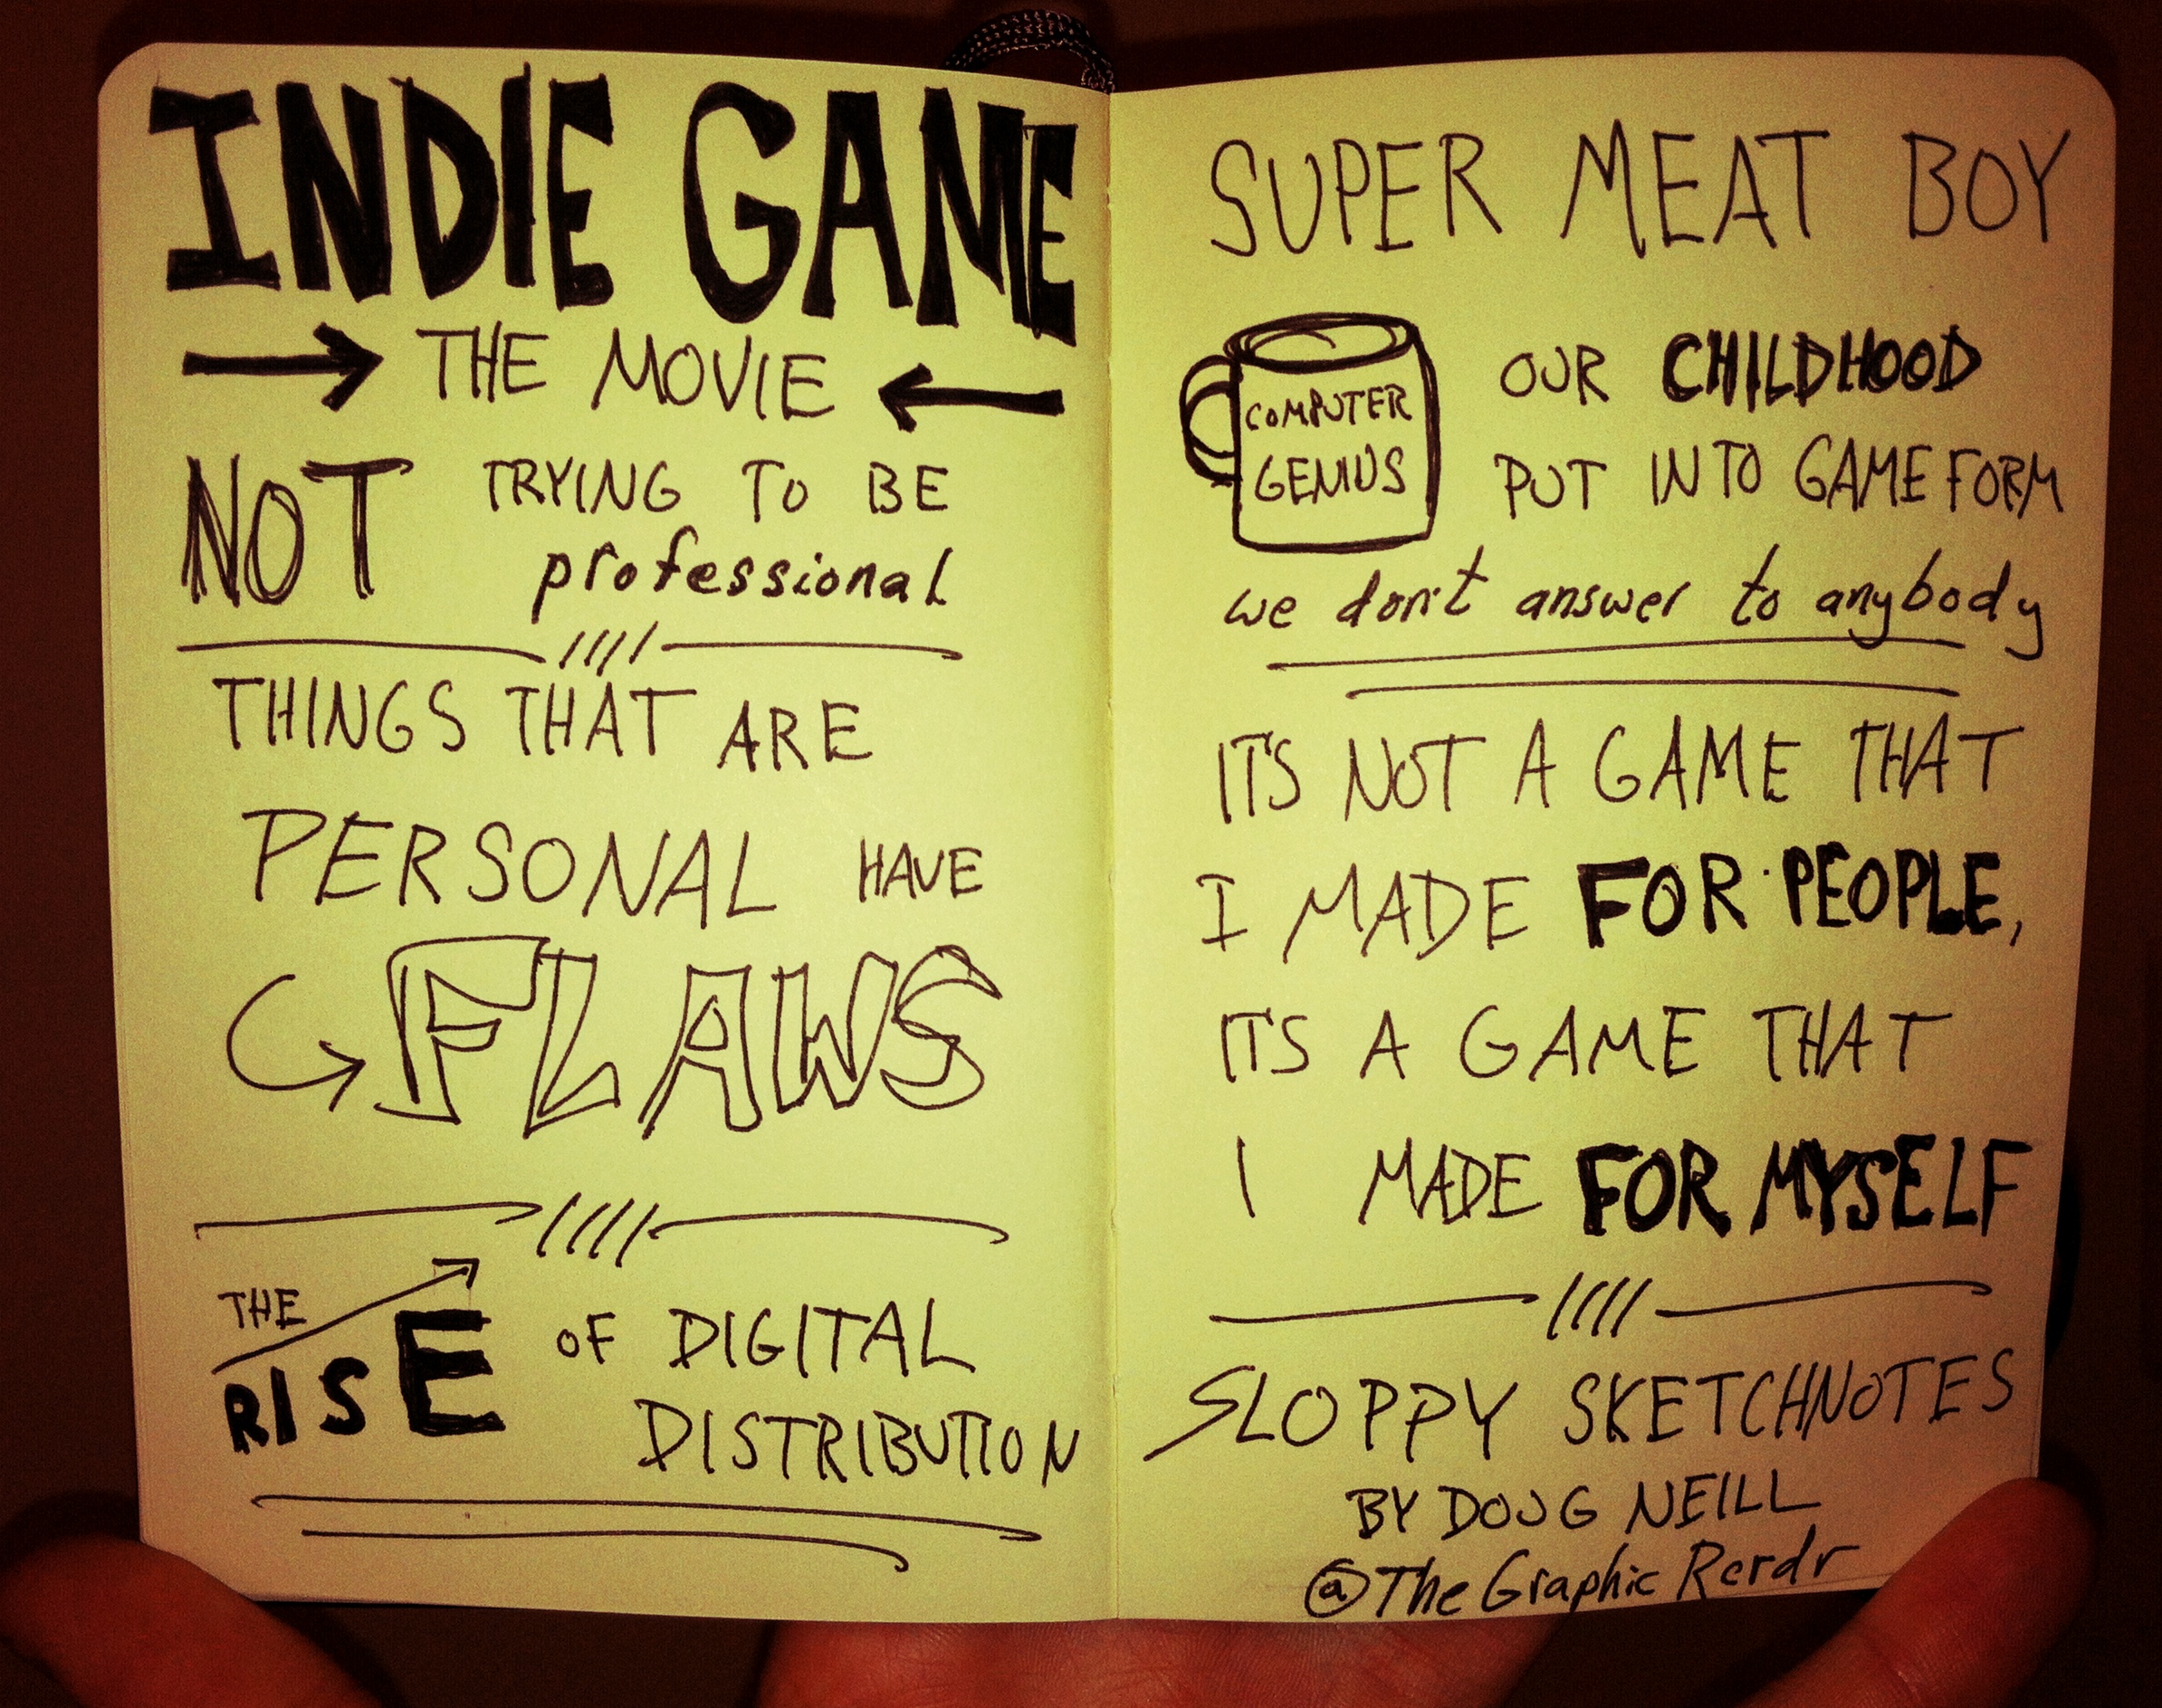 INDIE GAME
THE MOVIE
NOT TRYING TO BE
professional
THINGS THAT ARE
PERSONAL HAVE
FLAWS
THE
RISE OF DIGITAL
DISTRIBUTION
SUPER MEAT BOY
COMPUTER
GENIUS
OUR CHILDHOOD
PUT INTO GAME FORM
we don't answer to anybody
IT'S NOT A GAME THAT
I MADE FOR PEOPLE,
IT'S A GAME THAT
I MADE FOR MYSELF
SLOPPY SKETCHNOTES
BY DOUG NEILL
@TheGraphicRcrdr